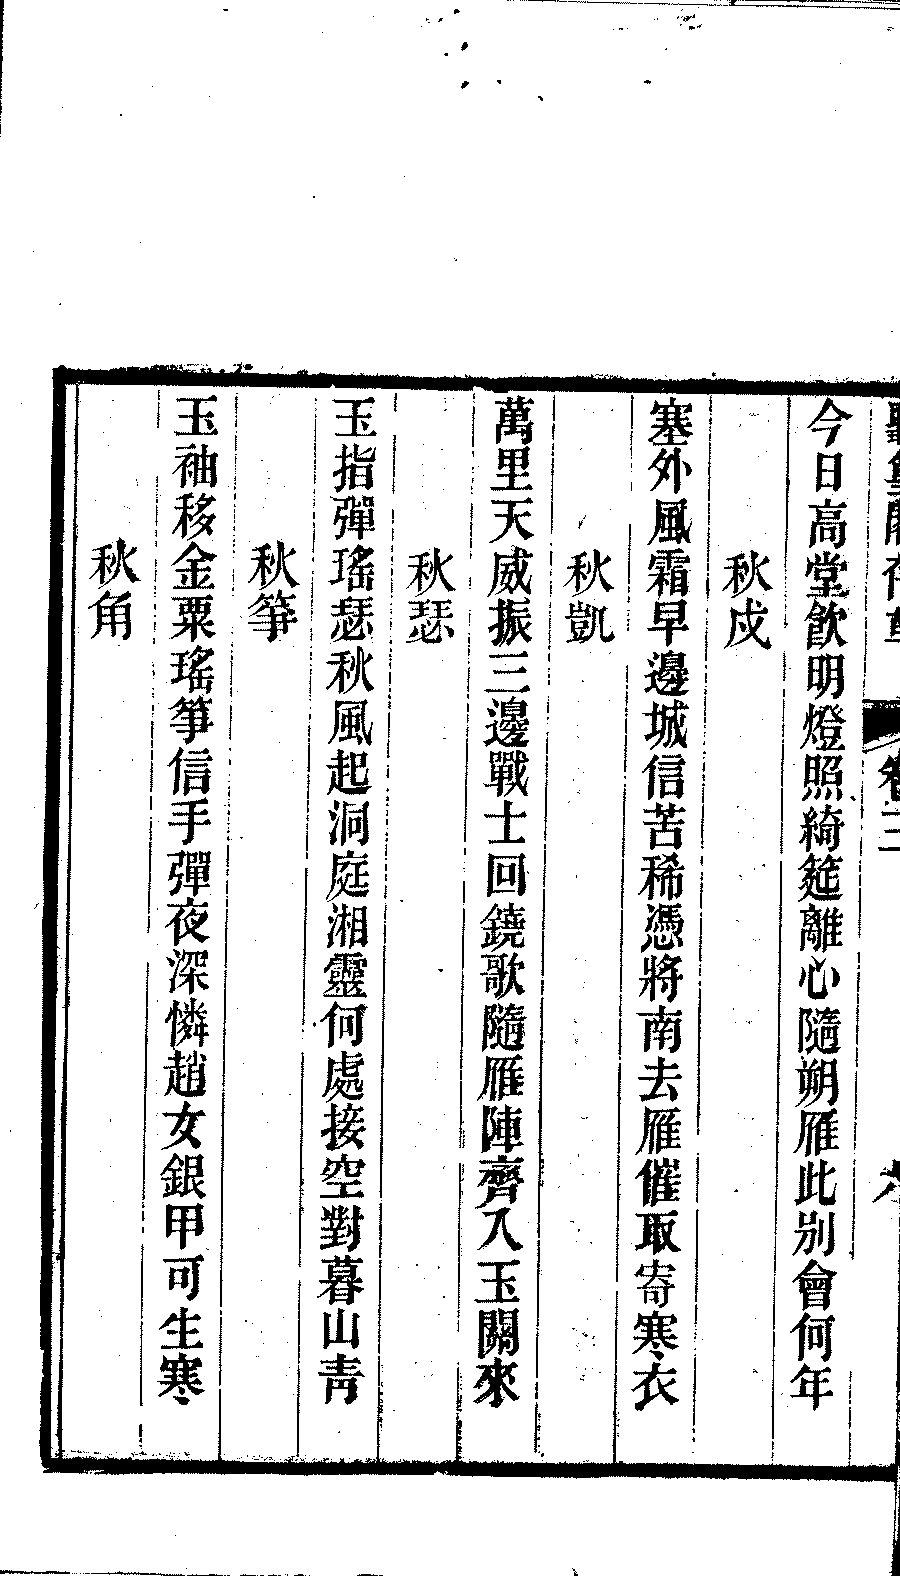 卷三
今日高堂飮明燈照綺筵離心隨朔雁此别會何年
秋戍
塞外風霜早邊城信苦稀憑將南去雁催取寄寒衣
秋凱
萬里天威振三邊戰士回鐃歌隨雁陣齊入玉關來
秋瑟
玉指彈瑤瑟秋風起洞庭湘靈何處接空對暮山靑
秋箏
玉袖移金粟瑤箏信手彈夜深憐趙女銀甲可生寒
秋角